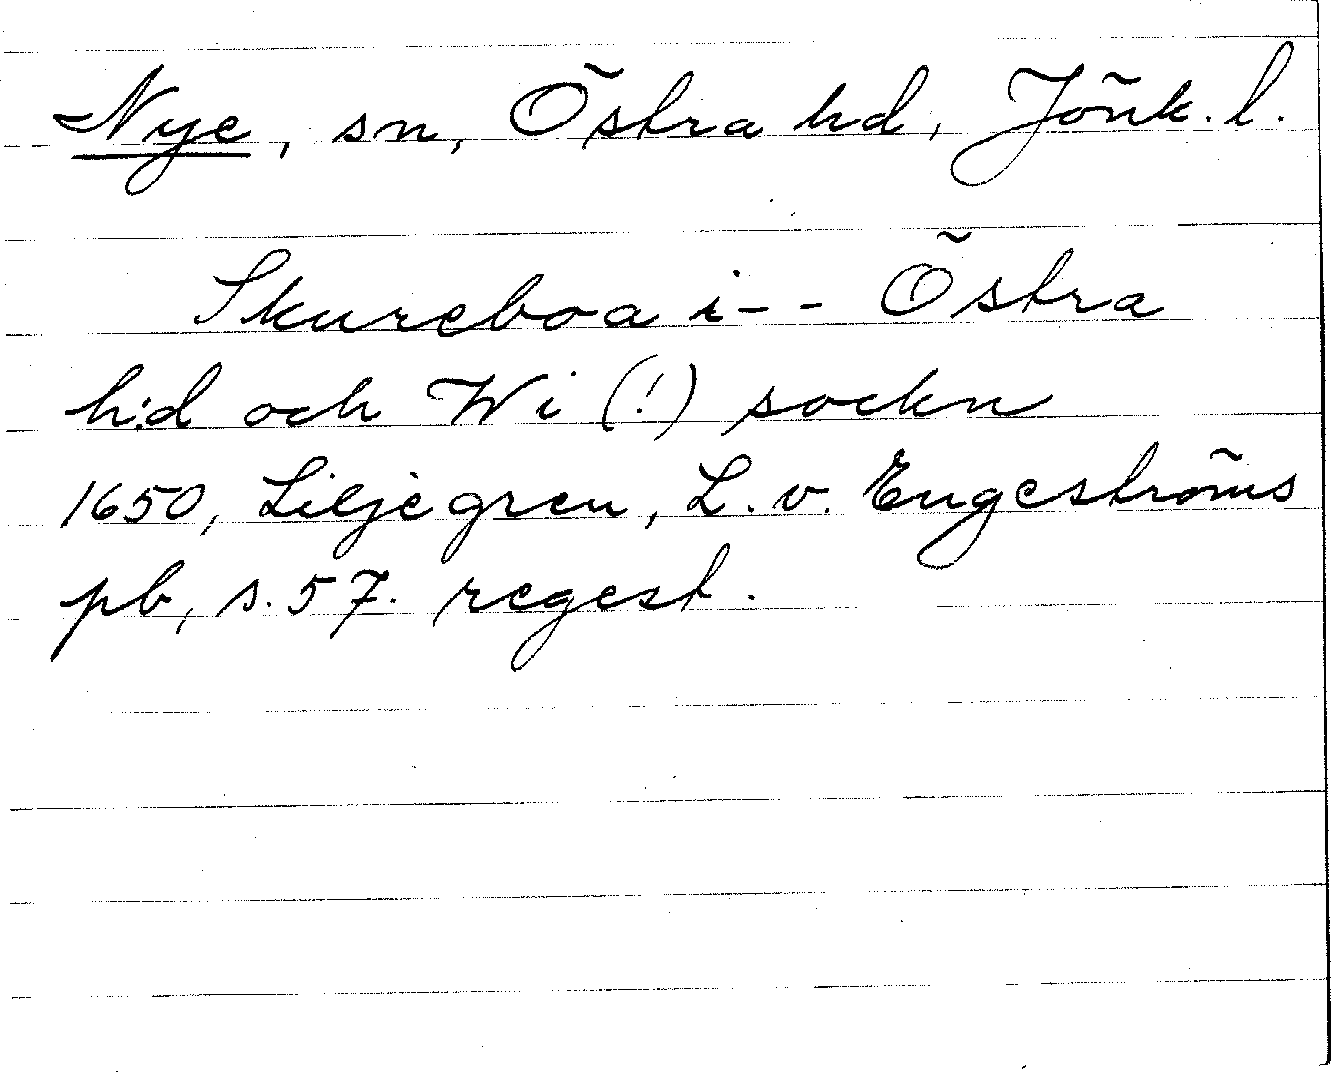 Nye, sn, Östra hd, Jönk. l.
Skureboa i - - Östra
h:d och Wi (!) sockn
1650, Liljegren, L. v. Engeströms
pb, s. 57. regest.